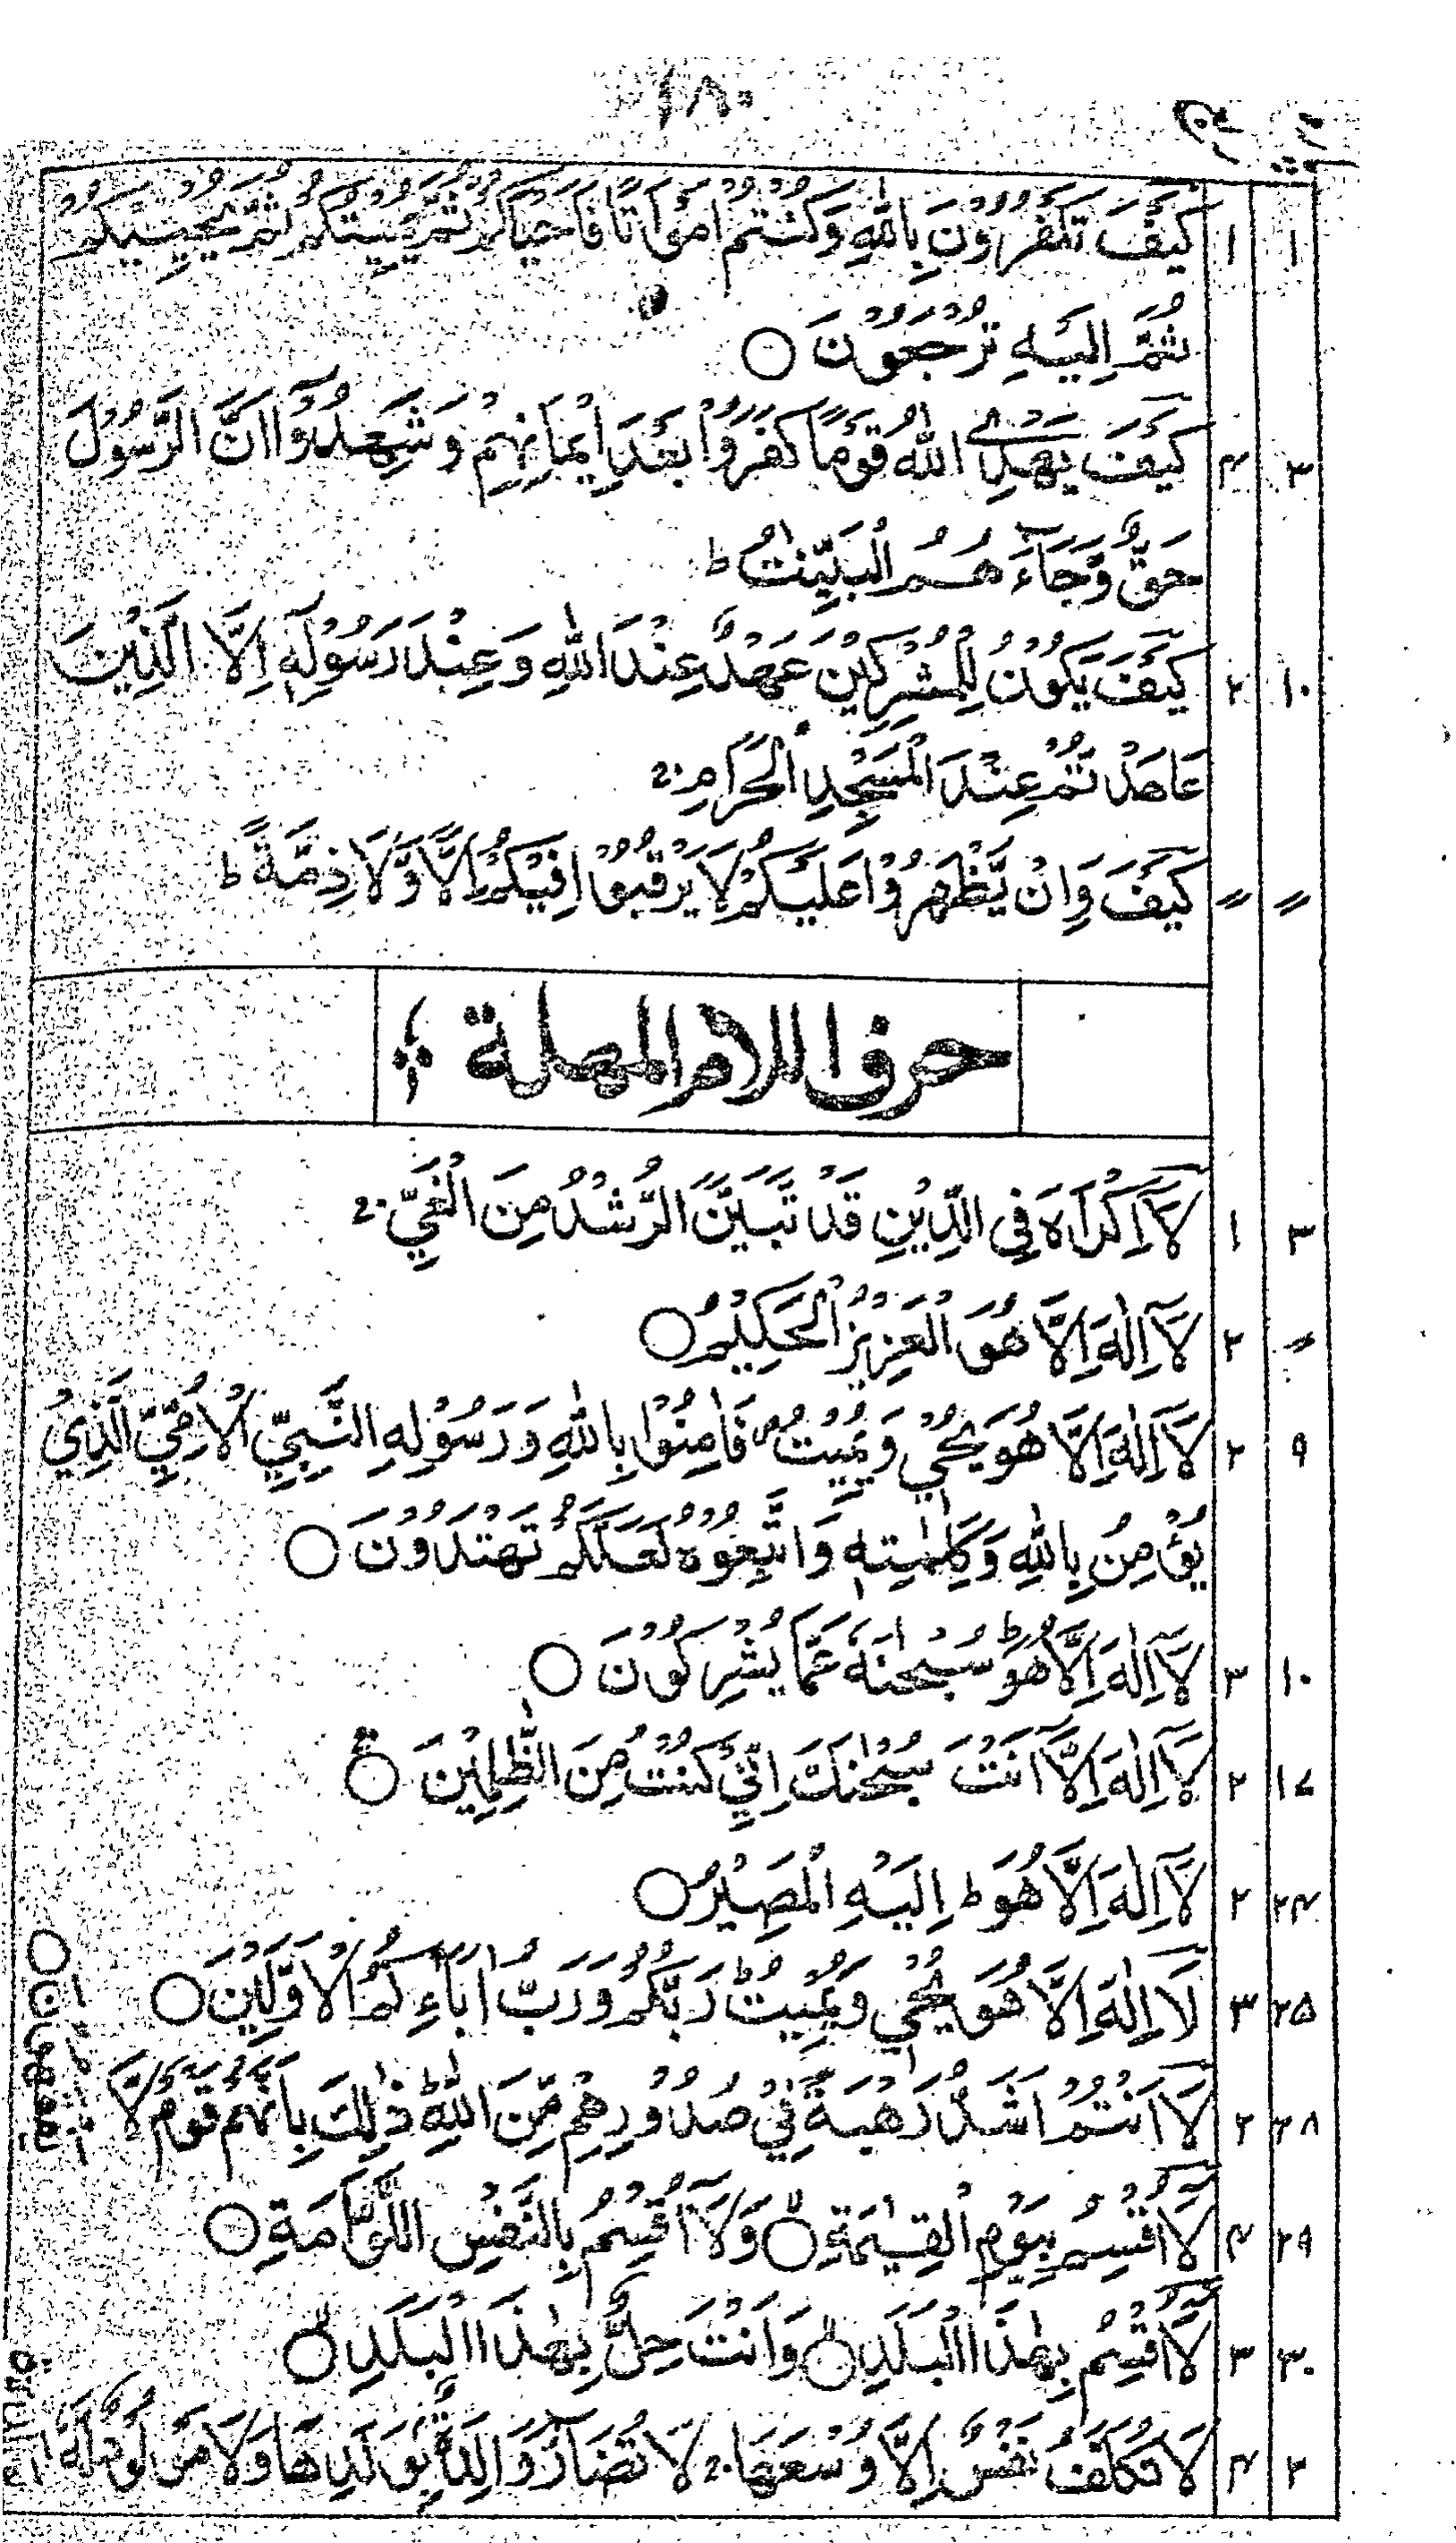 ١٨٠
١ ١ كَيْفَ تَكْفُرُوْنَ بِاللّٰهِ وَكُنْتُمْ اَمْوَاتًا فَاَحْيَاكُمْ ثُمَّ يُمِيْتُكُمْ ثُمَّ يُحْيِيْكُمْ
ثُمَّ اِلَيْهِ تُرْجَعُوْنَ ○
٣ ٤ كَيْفَ يَهْدِى اللّٰهُ قَوْمًا كَفَرُوْا بَعْدَ اِيْمَانِهِمْ وَشَهِدُوْٓا اَنَّ الرَّسُوْلَ
حَقٌّ وَّجَآءَ هُمُ الْبَيِّنٰتُ ط
١٠ ٢ كَيْفَ يَكُوْنُ لِلْمُشْرِكِيْنَ عَهْدٌ عِنْدَ اللّٰهِ وَعِنْدَ رَسُوْلِهٖٓ اِلَّا الَّذِيْنَ
عَاهَدْ تُمْ عِنْدَ الْمَسْجِدِ الْحَرَامِ
〃 〃 كَيْفَ وَاِنْ يَّظْهَرُوْا عَلَيْكُمْ لَا يَرْقُبُوْا فِيْكُمْ اِلًّا وَّلَا ذِمَّةً ط
حرف اللام المهملة
٣ ١ لَآ اِكْرَاهَ فِى الدِّيْنِ قَدْ تَّبَيَّنَ الرُّشْدُ مِنَ الْغَيِّ
〃 ٢ لَآ اِلٰهَ اِلَّا هُوَ الْعَزِيْزُ الْحَكِيْمُ ○
٩ ٢ لَآ اِلٰهَ اِلَّا هُوَ يُحْيٖ وَيُمِيْتُ فَاٰمِنُوْا بِاللّٰهِ وَرَسُوْلِهِ النَّبِيِّ الْاُمِّيِّ الَّذِيْ
يُؤْمِنُ بِاللّٰهِ وَكَلِمٰتِهٖ وَاتَّبِعُوْهُ لَعَلَّكُمْ تَهْتَدُوْنَ ○
١٠ ٣ لَآ اِلٰهَ اِلَّا هُوَ ط سُبْحٰنَهٗ عَمَّا يُشْرِكُوْنَ ○
١٧ ٢ لَآ اِلٰهَ اِلَّآ اَنْتَ سُبْحٰنَكَ اِنِّيْ كُنْتُ مِنَ الظّٰلِمِيْنَ ○
٢٤ ٢ لَآ اِلٰهَ اِلَّا هُوَ ط اِلَيْهِ الْمَصِيْرُ ○
٢٥ ٣ لَآ اِلٰهَ اِلَّا هُوَ يُحْيٖ وَيُمِيْتُ ط رَبُّكُمْ وَرَبُّ اٰبَآءِكُمُ الْاَوَّلِيْنَ ○
٢٨ ٢ لَاَ انْتُمْ اَشَدُّ رَهْبَةً فِيْ صُدُوْرِهِمْ مِّنَ اللّٰهِ ط ذٰلِكَ بِاَنَّهُمْ قَوْمٌ لَّا
يفقهون ○
٢٩ ٤ لَآ اُقْسِمُ بِيَوْمِ الْقِيٰمَةِ ○ وَلَآ اُقْسِمُ بِالنَّفْسِ اللَّوَّامَةِ ○
٣٠ ٣ لَآ اُقْسِمُ بِهٰذَا الْبَلَدِ ○ وَاَنْتَ حِلٌّ بِهٰذَا الْبَلَدِ ○
٢ ٤ لَا تُكَلَّفُ نَفْسٌ اِلَّا وُسْعَهَا لَا تُضَآرَّ وَالِدَةٌۢ بِوَلَدِهَا وَلَا مَوْلُوْدٌ لَّهٗ